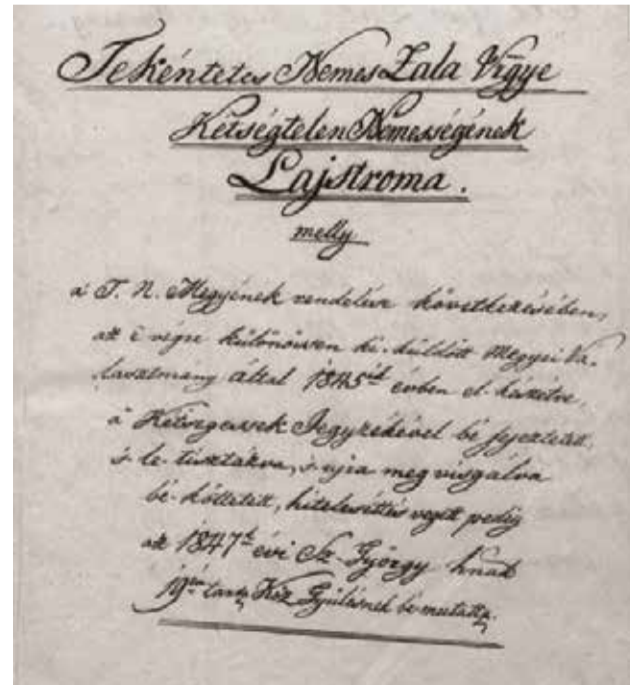 Tekéntetes Nemes Zala Vgye
Kétségtelen Nemességének
Lajstroma.
melly
a' T. N. Megyének rendelése következésében,
az e végre különössen ki-küldött Megyei Vá-
lasztmány által 1845ik évben el-készítve,
a' Kétségessek Jegyzékével bé fejeztetett,
s le-tisztázva, s ujra meg visgálva
bé-köttetett, hitelesittés végett pedig
az 1847k évi Sz. György hnak
19én tartt Köz Gyülésnek bé-mutatta.